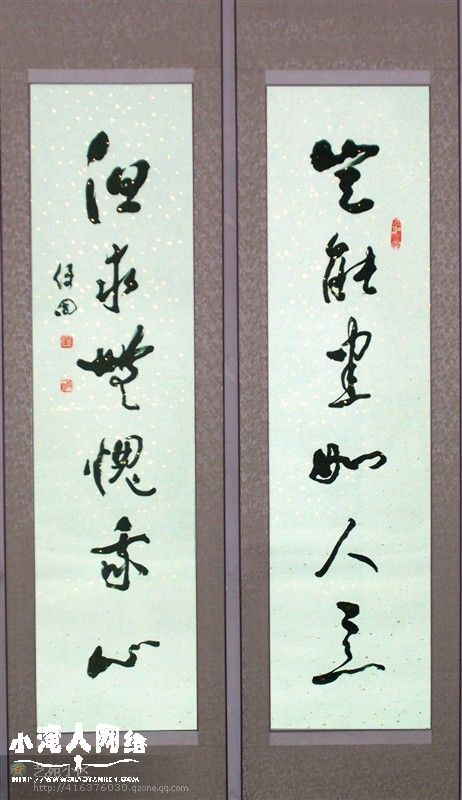 豈能盡如人意
但求無愧我心
小淹人网络
http://416376030.qzone.qq.com